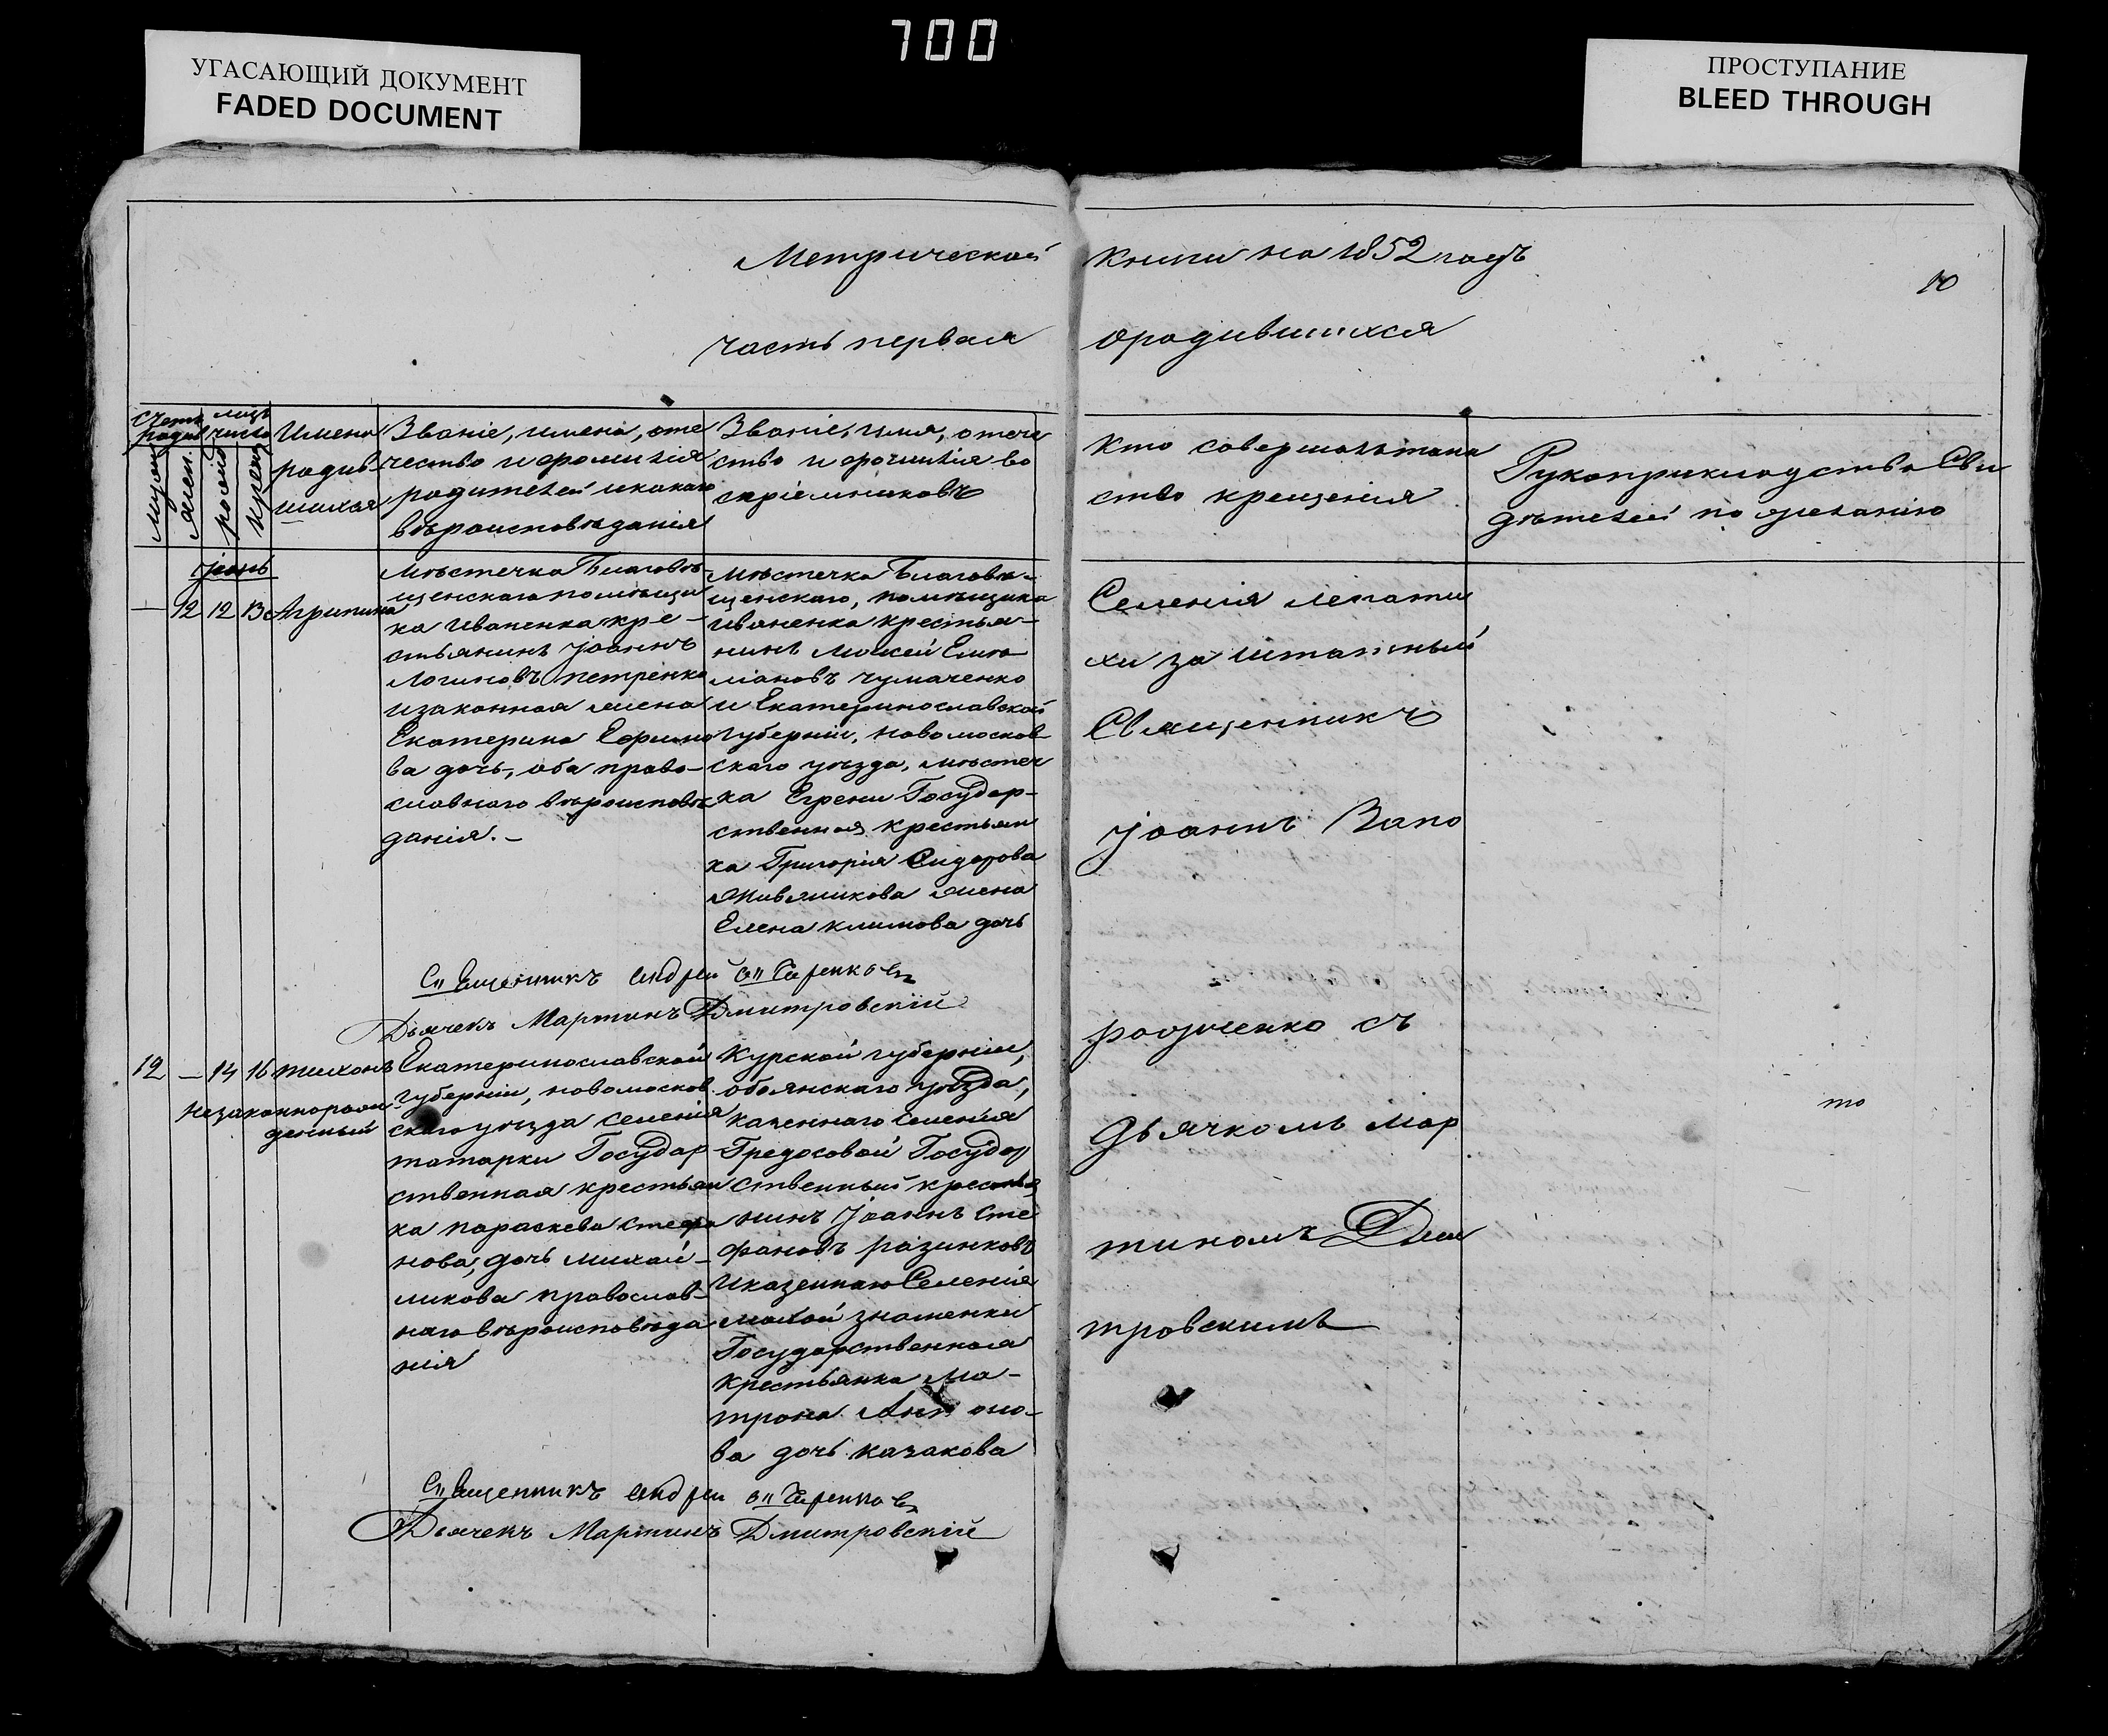 700
УГАСАЮЩИЙ ДОКУМЕНТ
FADED DOCUMENT
ПРОСТУПАНИЕ
BLEED THROUGH
Метрической
книги на 1852 годъ
10
часть первая
ородившихся
Счетъ родив
муж
жен.
числа
рожд
крещ
Имена
родив-
шихся
Званіе, имена, оте
чество и фамилія
родителей икакаго
въроисповъданія
Званіе, имя, отече
ство и фамилія во
спріемниковъ
Кто совершалътаин
ство крещенія
Рукоприкладство Сви
дътелей по желанію
Іюнь
— 12 12 13 Агрипина
мъстечка Благовъ-
щенскаго помъщи
ка Иваненка кре-
стьянинъ Іоаннъ
Логиновъ Петренко
изаконная жена
Екатерина Ефимо
ва дочь, оба право-
славнаго въроисповъ
данія.-
мъстечка Благовъ-
щенскаго, помъщика
Иваненка крестья-
нинъ Мокей Емел
ьяновъ Чумаченко
и Екатеринославской
губерніи, новомосков-
скаго уъзда, мъстеч
ка Егрени Государ-
ственная крестьян
ка Григорія Сидорова
жена
Елена климова дочь
Селенія
хи за штатный
Священникъ
Іоаннъ Запо
рожченко съ
дьячкомъ Мар
тиномъ Дми
тровскимъ
Священникъ Андрей
Дьячекъ Мартинъ Дмитровскій
12 — 14 16 тихонъ
незаконнорож
денный
Екатеринославской
губерніи, новомосков
скаго уъзда селенія
татарки Государ
ственная крестьян
ка параскева стефа
нова, дочь михай-
ликова православ-
наго въроисповъда
нія
Курской губерніи,
обоянскаго уъзда,
казеннаго селенія
Государ
ственный крестья
нинъ Іоаннъ Сте
фановъ разинковъ
Иказеннаго Селенія
малой знаменки
Государственная
крестьянка Ма-
трона
ва дочь казакова
то
Священникъ Андрей
Дьячекъ Мартинъ Дмитровскій